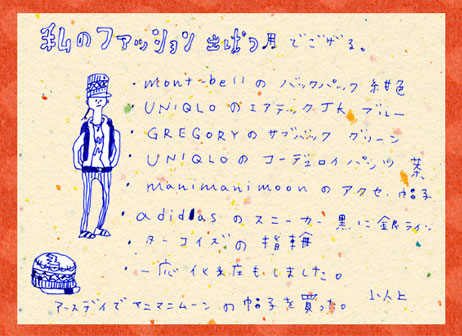 私のファッション出ぱつ用でござる。
・mont-bellのバックパック 紺色
・UNIQLOのエアテックJK ブルー
・GREGORYのサブバック グリーン
・UNIQLOのコーデュロイパンツ 茶
・manimanimoonのアクセ、帽子
・adidasのスニーカー 黒に銀ライン
・ターコイズの指輪
・一応化粧もしました。
アースデイでマニマニムーンの帽子を買った。 以上